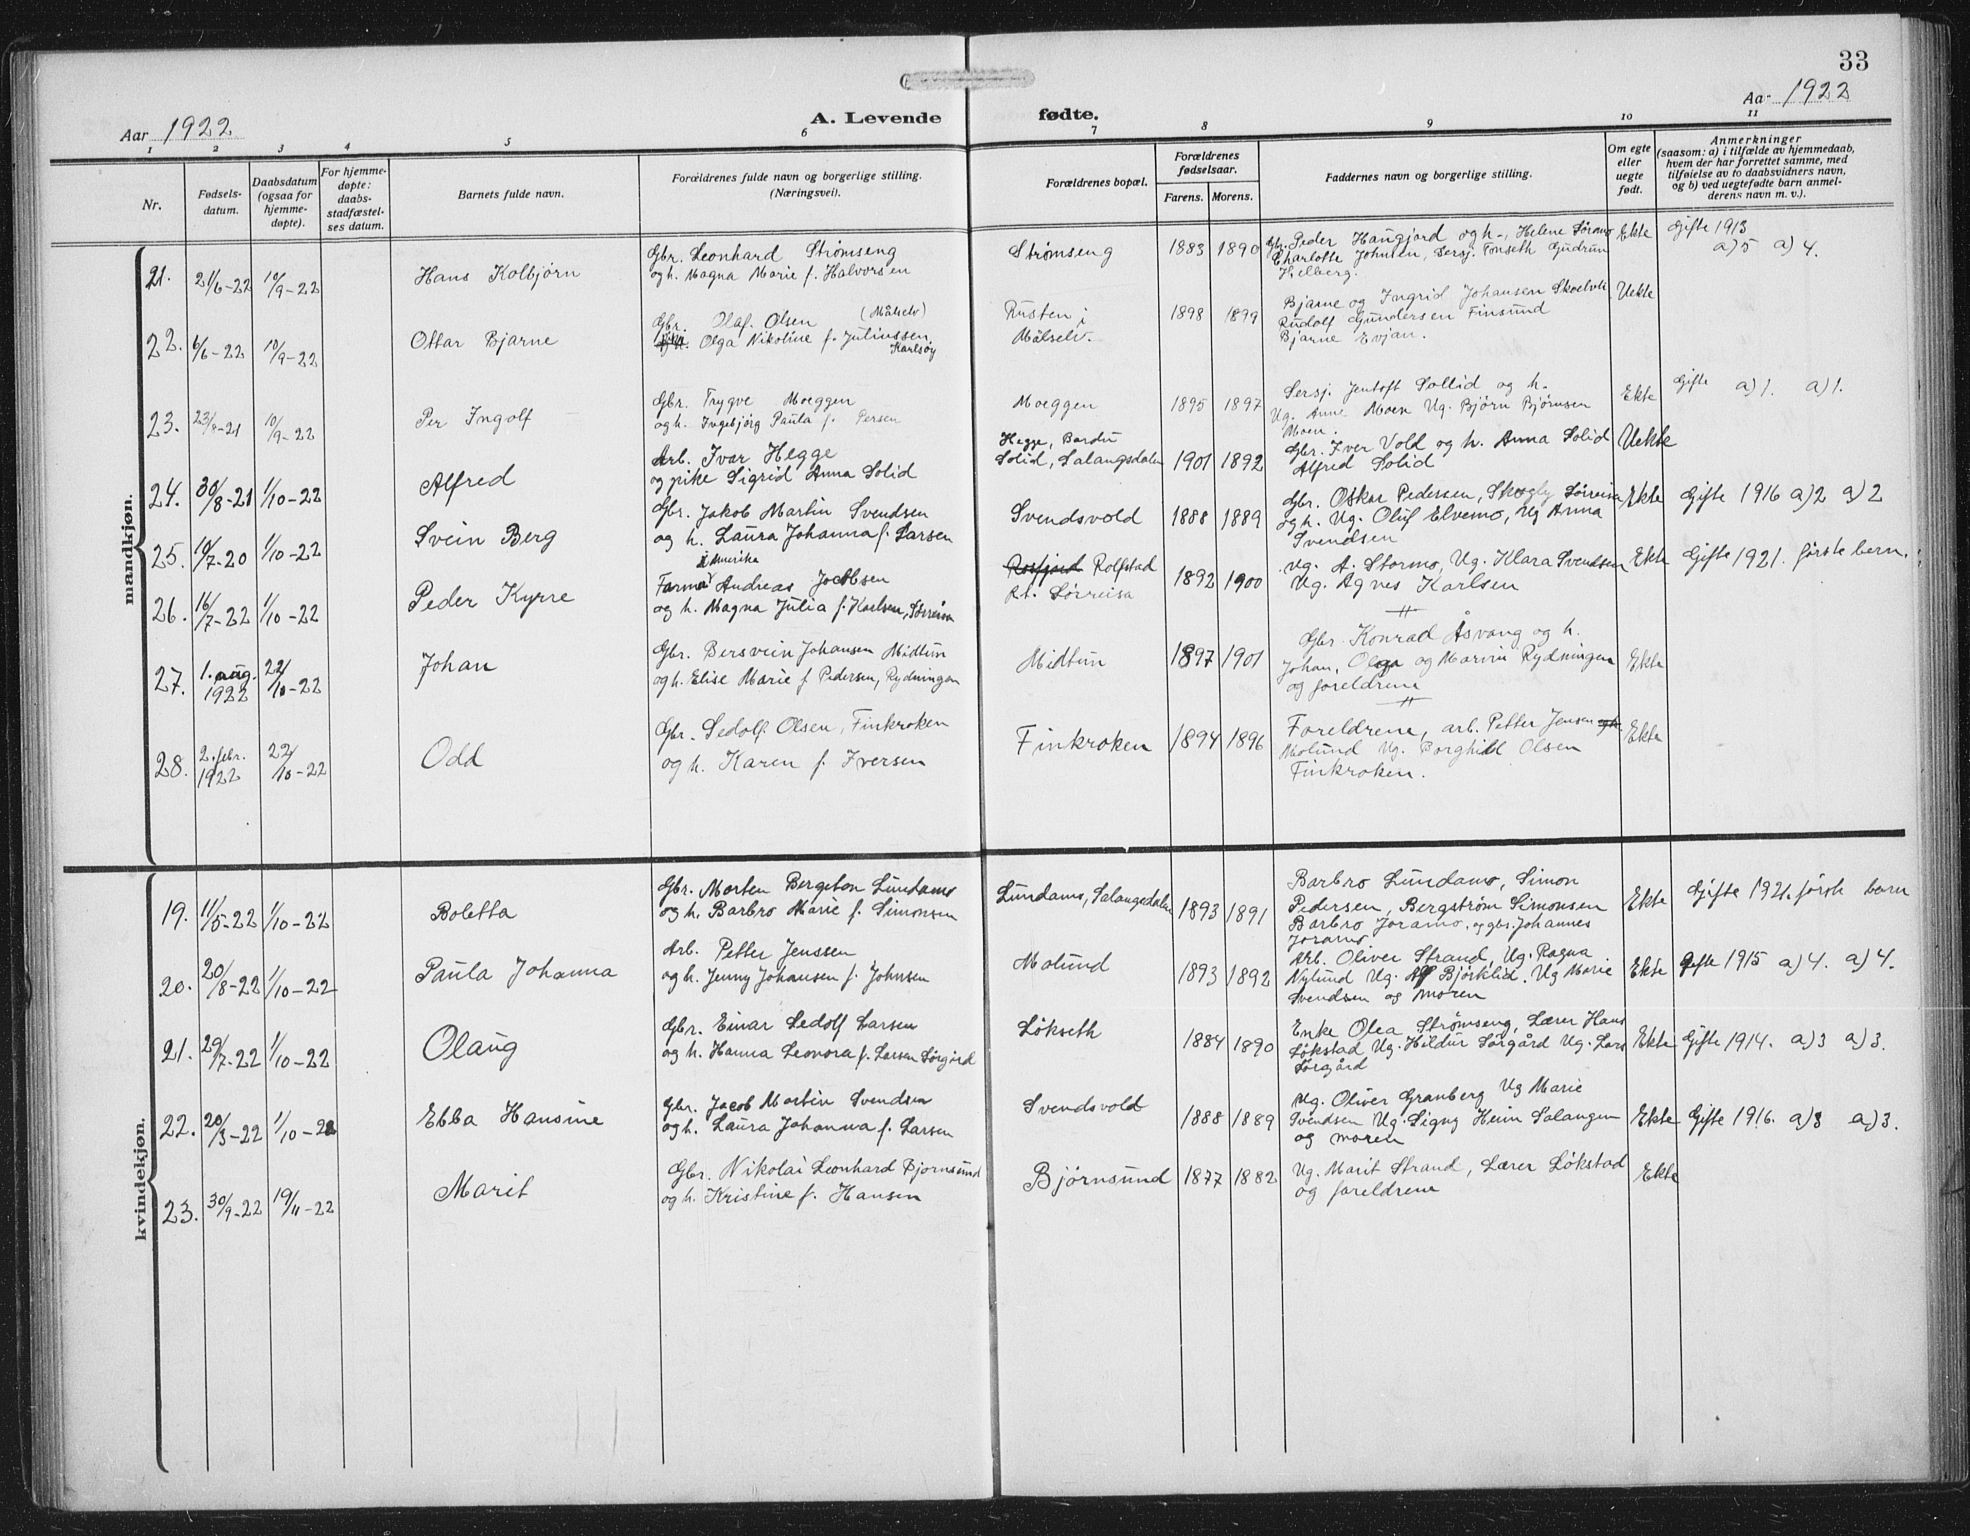 33
Aar 1922
A. Levende fødte.
Aar 1922
1 2 3 4 5 6 7 8 9 10 11
Nr.
Fødsels-
datum.
Daabsdatum
(ogsaa for
hjemme-
døpte).
For hjemme-
døpte:
daabs-
stadfæstel-
ses datum.
Barnets fulde navn.
Forældrenes fulde navn og borgerlige stilling.
(Næringsvei).
Forældrenes bopæl.
Forældrenes
fødselsaar.
Farens. Morens.
Faddernes navn og borgerlige stilling.
Om egte
eller
uegte
født.
Anmerkninger
(saasom: a) i tilfælde av hjemmedaab,
hvem der har forrettet samme, med
tilføielse av to daabsvidners navn,
og b) ved uegtefødte barn anmel-
derens navn m. v.).
mandkjøn.
21. 21/6-22 10/9-22 Hans Kolbjørn
Gbr. Leonhard Strømseng
og h. Magna Marie f. Halvorsen
Strømseng 1883 1890
Gbr. Peder Haugjord og h., Helene Søramo
Charlotte Johnsen, Sersj. Fonseth Gudrun
Kilberg.
Ekte
Gifte 1913
a) 5 a) 4.
22. 6/6-22 10/9-22 Ottar Bjarne
Gbr. Olaf Olsen (Målselv)
Olga Nikoline f. Juliussen.
Karlsøy
Rusten i
Målselv.
1898 1899
Bjarne og Ingrid Johansen Skoelvli
Rudolf Gundersen Finsund
Bjarne Evjan.
Uekte
23. 23/8-21 10/9-22 Per Ingolf
Gbr. Trygve Moeggen
og h. Ingebjørg Paula f. Persen
Moeggen 1895 1897
Sersj. Jentoft Sollid og h.
Ug. Anne Moen Ug. Bjørn Bjørnsen
Moen.
Ekte
Gifte a) 1. a) 1.
24. 30/8-21 1/10-22 Alfred
Arb. Ivar Hegge
og pike Sigrid Anna Solid
Hegge, Bardu
Solid, Salangsdalen
1901 1892
Gbr. Iver Vold og h. Anna Solid
Alfred Solid
Uekte
25. 10/7-20 1/10-22 Svein Berg
Gbr. Jakob Martin Svendsen
og h. Laura Johanna f. Larsen
Svendsvold 1888 1889
Gbr. Oskar Pedersen, Skogly Sørreisa
og h. Ug. Oluf Elvemo, Ug Anna
Svendsen
Ekte
Gifte 1916 a) 2 a) 2
26. 16/7-22 1/10-22 Peder Kyrre
i Amerika
Farmer Andreas Jacobsen
og h. Magna Julia f. Karlsen, Sørreisa
Rossfjord Rolfstad
pt. Sørreisa
1892 1900
Ug. A. Stormo, Ug. Klara Svendsen
Ug. Agnes Karlsen
Ekte
Gifte 1921. første barn.
27. 1. aug.
1922 22/10-22 Johan
Gbr. Bersvein Johansen Midtun
og h. Elise Marie f. Pedersen, Rydningen
Midtun 1897 1901
Gbr. Konrad Åsvang og h.
Johan, Olga og Marvin Rydningen
og foreldrene
Ekte
28. 2. febr.
1922 22/10-22 Odd
Gbr. Sedolf Olsen, Finkroken
og h. Karen f. Iversen
Finkroken 1894 1896
Foreldrene, arb. Petter Jensen og h.
Molund Ug. Borghild Olsen
Finkroken.
Ekte
kvindekjøn.
19. 11/5-22 1/10-22 Boletta
Gbr. Morten Bergeton Lundamo
og h. Barbro Marie f. Simonsen
Lundamo, Salangsdalen 1893 1891
Barbro Lundamo, Simon
Pedersen, Bergstrøm Simonsen
Barbro Joramo, og gbr. Johannes
Joramo.
Ekte
Gifte 1921. første barn
20. 20/8-22 1/10-22 Paula Johanna
Arb. Petter Jenssen
og h. Jenny Johansen f. Johnsen
Molund 1893 1892
Arb. Oliver Strand, Ug. Ragna
Nylund Ug. Alf Bjørklid. Ug Marie
Svendsen og moren
Ekte
Gifte 1915 a) 4. a) 4.
21. 29/7-22 1/10-22 Olaug
Gbr. Einar Sedolf Larsen
og h. Hanna Leonora f. Larsen Sørgård
Løkseth 1884 1890
Enke Olea Strømseng, Lærer Hans
Løkstad Ug. Hildur Sørgård Ug. Lars
Sørgård
Ekte
Gifte 1914. a) 3 a) 3.
22. 20/3-22 1/10-22 Ebba Hansine
Gbr. Jacob Martin Svendsen
og h. Laura Johanna f. Larsen
Svendsvold 1888 1889
Ug. Oliver Granberg Ug Marie
Svendsen Ug. Signy Heim Salangen
og moren
Ekte
Gifte 1916. a) 3 a) 3.
23. 30/9-22 19/11-22 Marit
Gbr. Nikolai Leonhard Bjørnsund
og h. Kristine f. Hansen
Bjørnsund 1877 1882
Ug. Marit Strand, Lærer Løkstad
og foreldrene
Ekte